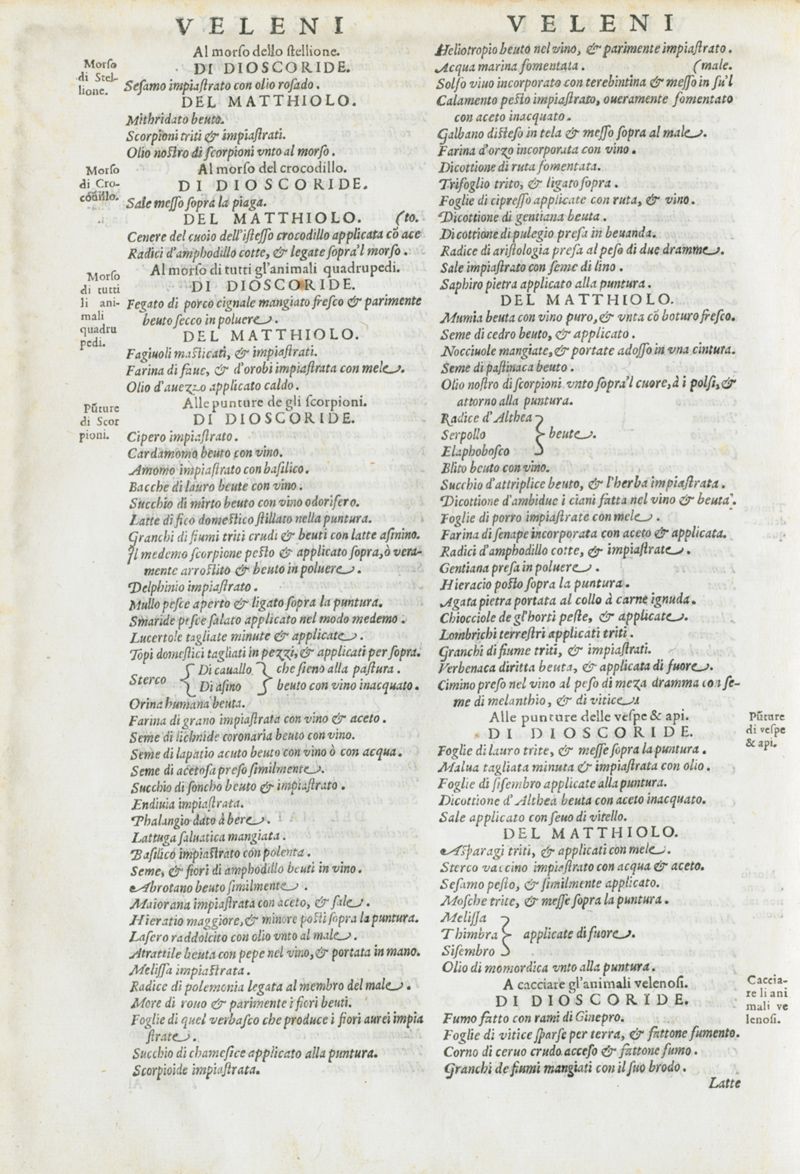 VELENI
Al morſo dello ſtellione.
Morſo
di Stel-
lione.
DI DIOSCORIDE.
Seſamo impiaſtrato con olio roſado.
DEL MATTHIOLO.
Mithridato beuto.
Scorpioni triti & impiaſtrati.
Olio noſtro di ſcorpioni vnto al morſo.
Al morſo del crocodillo.
Morſo
di Cro-
codillo.
DI DIOSCORIDE.
Sale meſſo ſopra la piaga.
DEL MATTHIOLO. (to.
Cenere del cuoio dell'iſteſſo crocodillo applicata cõ ace
Radici d'amphodillo cotte, & legate ſopra'l morſo.
Al morſo di tutti gl'animali quadrupedi.
Morſo
di tutti
li ani-
mali
quadru
pedi.
DI DIOSCORIDE.
Fegato di porco cignale mangiato freſco & parimente
beuto ſecco in poluere.
DEL MATTHIOLO.
Fagiuoli maſticati, & impiaſtrati.
Farina di faue, & d'orobi impiaſtrata con mele.
Olio d'auezzo applicato caldo.
Alle punture de gli ſcorpioni.
Pũture
di Scor
pioni.
DI DIOSCORIDE.
Cipero impiaſtrato.
Cardamomo beuto con vino.
Amomo impiaſtrato con baſilico.
Bacche di lauro beute con vino.
Succhio di mirto beuto con vino odorifero.
Latte di fico domeſtico ſtillato nella puntura.
Granchi di fiumi triti crudi & beuti con latte aſinino.
Il medemo ſcorpione peſto & applicato ſopra, ò vera-
mente arroſtito & beuto in poluere.
Delphinio impiaſtrato.
Mullo peſce aperto & ligato ſopra la puntura.
Smaride peſce ſalato applicato nel modo medemo.
Lucertole tagliate minute & applicate.
Topi domeſtici tagliati in pezzi, & applicati per ſopra.
Sterco { Di cauallo } che ſieno alla paſtura.
{ Di aſino } beuto con vino inacquato.
Orina humana beuta.
Farina di grano impiaſtrata con vino & aceto.
Seme di lichnide coronaria beuto con vino.
Seme di lapatio acuto beuto con vino ò con acqua.
Seme di acetoſa preſo ſimilmente.
Succhio di ſoncho beuto & impiaſtrato.
Endiuia impiaſtrata.
Phalangio dato à bere.
Lattuga ſaluatica mangiata.
Baſilico impiaſtrato con polenta.
Seme, & fiori di amphodillo beuti in vino.
Abrotano beuto ſimilmente.
Maiorana impiaſtrata con aceto, & ſale.
Hieratio maggiore, & minore poſti ſopra la puntura.
Laſero raddolcito con olio vnto al male.
Atrattile beuta con pepe nel vino, & portata in mano.
Meliſſa impiaſtrata.
Radice di polemonia legata al membro del male.
More di rouo & parimente i fiori beuti.
Foglie di quel verbaſco che produce i fiori aurei impia
ſtrate.
Succhio di chameſice applicato alla puntura.
Scorpioide impiaſtrata.
VELENI
Heliotropio beuto nel vino, & parimente impiaſtrato.
Acqua marina fomentata. (male.
Solfo viuo incorporato con terebintina & meſſo in ſu'l
Calamento peſto impiaſtrato, oueramente fomentato
con aceto inacquato.
Galbano diſteſo in tela & meſſo ſopra al male.
Farina d'orzo incorporata con vino.
Dicottione di ruta fomentata.
Trifoglio trito, & ligato ſopra.
Foglie di cipreſſo applicate con ruta, & vino.
Dicottione di gentiana beuta.
Dicottione di pulegio preſa in beuanda.
Radice di ariſtologia preſa al peſo di due dramme.
Sale impiaſtrato con ſeme di lino.
Saphiro pietra applicato alla puntura.
DEL MATTHIOLO.
Mumia beuta con vino puro, & vnta cõ boturo freſco.
Seme di cedro beuto, & applicato.
Nocciuole mangiate, & portate adoſſo in vna cintura.
Seme di paſtinaca beuto.
Olio noſtro di ſcorpioni vnto ſopra'l cuore, à i polſi, &
attorno alla puntura.
Radice d'Althea }
Serpollo } beute.
Elaphoboſco }
Blito beuto con vino.
Succhio d'attriplice beuto, & l'herba impiaſtrata.
Dicottione d'ambidue i ciani fatta nel vino & beuta.
Foglie di porro impiaſtrate con mele.
Farina di ſenape incorporata con aceto & applicata.
Radici d'amphodillo cotte, & impiaſtrate.
Gentiana preſa in poluere.
Hieracio poſto ſopra la puntura.
Agata pietra portata al collo à carne ignuda.
Chiocciole de gl'horti peſte, & applicate.
Lombrichi terreſtri applicati triti.
Granchi di fiume triti, & impiaſtrati.
Verbenaca diritta beuta, & applicata di fuore.
Cimino preſo nel vino al peſo di meza dramma con ſe-
me di melanthio, & di vitice
Alle punture delle veſpe & api.
Pũture
di veſpe
& api.
DI DIOSCORIDE.
Foglie di lauro trite, & meſſe ſopra la puntura.
Malua tagliata minuta & impiaſtrata con olio.
Foglie di ſiſembro applicate alla puntura.
Dicottione d'Althea beuta con aceto inacquato.
Sale applicato con ſeuo di vitello.
DEL MATTHIOLO.
Aſparagi triti, & applicati con mele.
Sterco vaccino impiaſtrato con acqua & aceto.
Seſamo peſto, & ſimilmente applicato.
Moſche trite, & meſſe ſopra la puntura.
Meliſſa }
Thimbra } applicate di fuore.
Siſembro }
Olio di momordica vnto alla puntura.
A cacciare gl'animali velenoſi.
Caccia-
re li ani
mali ve
lenoſi.
DI DIOSCORIDE.
Fumo fatto con rami di Ginepro.
Foglie di vitice ſparſe per terra, & fattone fumento.
Corno di ceruo crudo acceſo & fattone fumo.
Granchi de fiumi mangiati con il ſuo brodo.
Latte